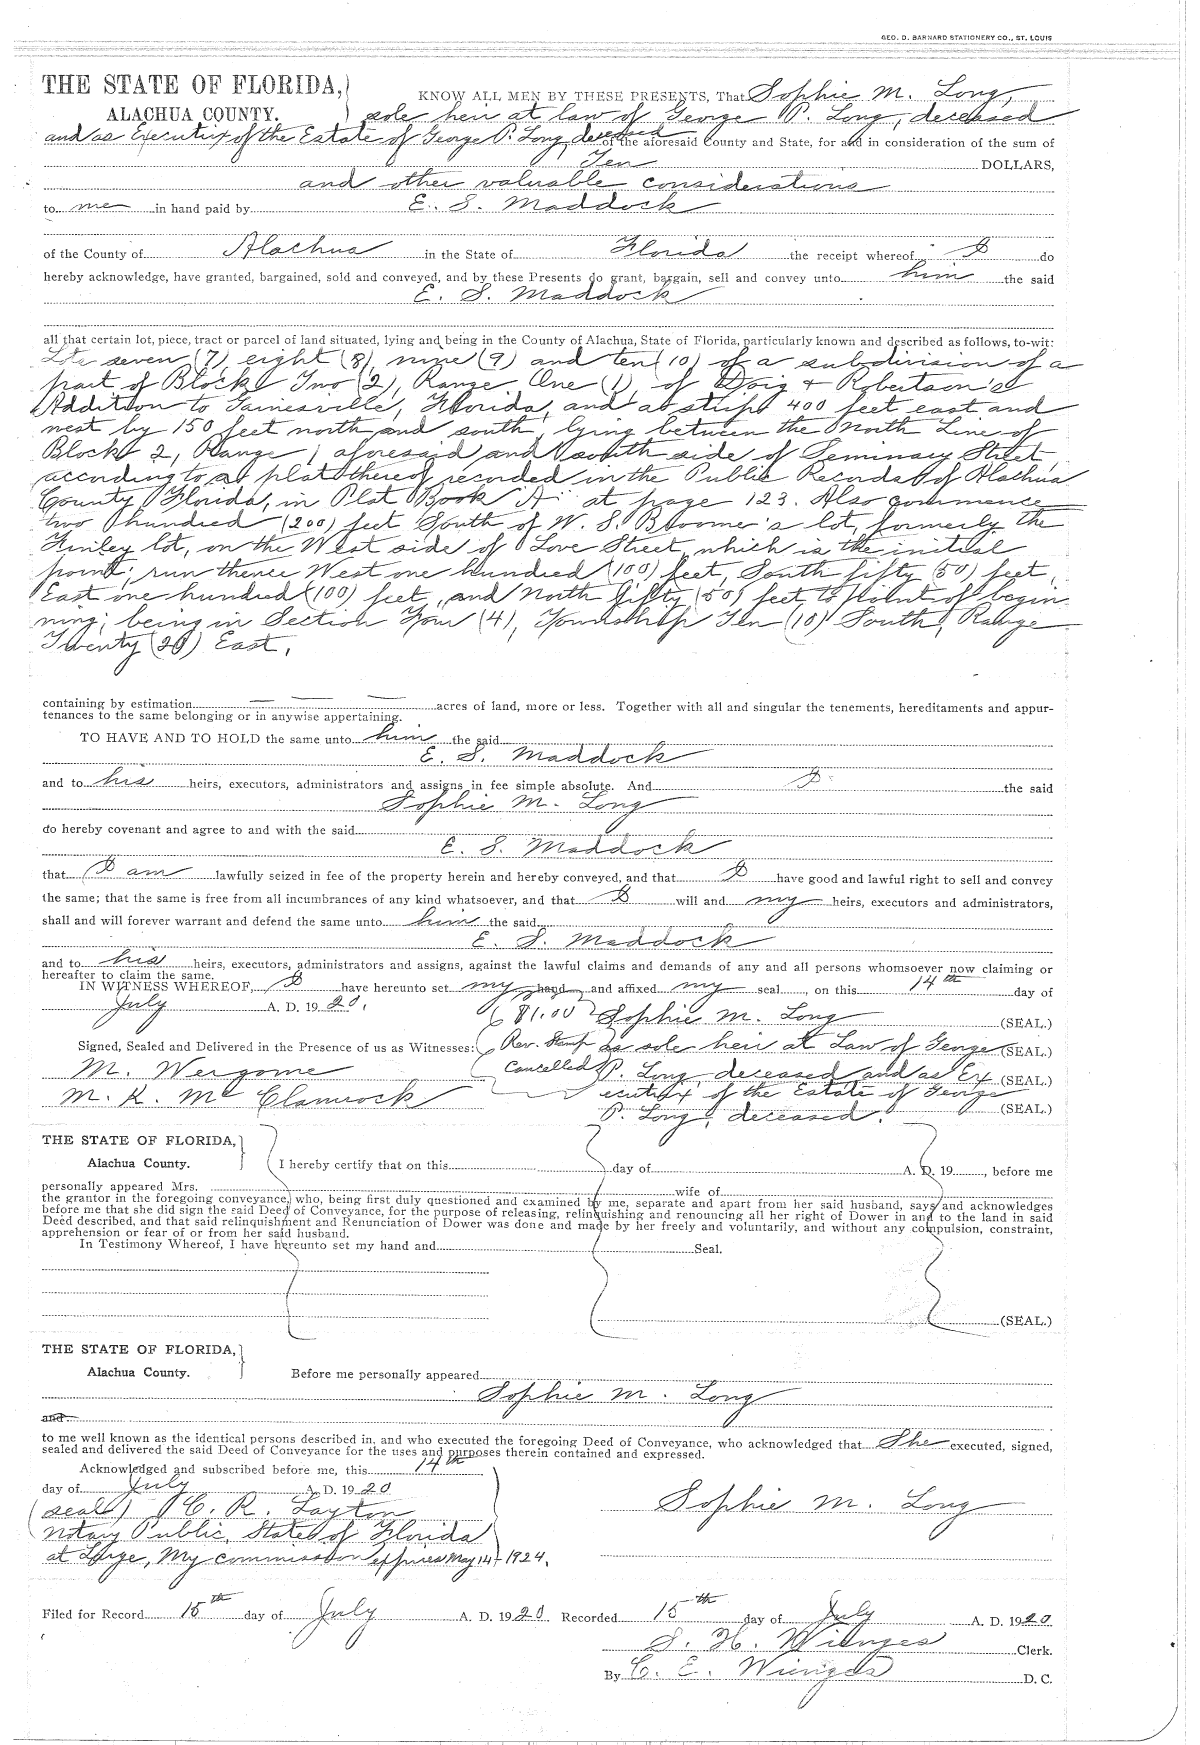 GEO. D. BARNARD STATIONERY CO., ST. LOUIS
THE STATE OF FLORIDA,
ALACHUA COUNTY.
KNOW ALL MEN BY THESE PRESENTS, That Sophie M. Long,
sole heir at law of George P. Long, deceased
and as Executrix of the Estate of George P. Long, deceased of the aforesaid County and State, for and in consideration of the sum of
Ten DOLLARS,
and other valuable considerations
to me in hand paid by E. S. Maddock
of the County of Alachua in the State of Florida the receipt whereof I do
hereby acknowledge, have granted, bargained, sold and conveyed, and by these Presents do grant, bargain, sell and convey unto him the said
E. S. Maddock
all that certain lot, piece, tract or parcel of land situated, lying and being in the County of Alachua, State of Florida, particularly known and described as follows, to-wit:
Lots seven (7), eight (8), nine (9) and ten (10) of a subdivision of a
part of Block Two (2), Range One (1), of Doig & Robertson's
Addition to Gainesville, Florida, and a strip 400 feet east and
west by 150 feet north and south, lying between the North Line of
Block 2, Range 1 aforesaid and south side of Seminary Street,
according to a plat thereof recorded in the Public Records of Alachua
County Florida, in Plat Book "A" at page 123. Also commence
two hundred (200) feet South of W. S. Bloomer's lot, formerly the
Finley lot, on the West side of Love Street, which is the initial
point; run thence West one hundred (100) feet, South fifty (50) feet,
East one hundred (100) feet, and North fifty (50) feet to point of begin
ning; being in Section Four (4), Township Ten (10) South, Range
Twenty (20) East.
containing by estimation — — — acres of land, more or less. Together with all and singular the tenements, hereditaments and appur-
tenances to the same belonging or in anywise appertaining.
TO HAVE AND TO HOLD the same unto him the said
E. S. Maddock
and to his heirs, executors, administrators and assigns in fee simple absolute. And I the said
Sophie M. Long
do hereby covenant and agree to and with the said
E. S. Maddock
that I am lawfully seized in fee of the property herein and hereby conveyed, and that I have good and lawful right to sell and convey
the same; that the same is free from all incumbrances of any kind whatsoever, and that I will and my heirs, executors and administrators,
shall and will forever warrant and defend the same unto him the said
E. S. Maddock
and to his heirs, executors, administrators and assigns, against the lawful claims and demands of any and all persons whomsoever now claiming or
hereafter to claim the same.
IN WITNESS WHEREOF, I have hereunto set my hand and affixed my seal, on this 14th day of
July A. D. 1920.
($1.00 Sophie M. Long (SEAL.)
Signed, Sealed and Delivered in the Presence of us as Witnesses: Rev. Stamp as sole heir at Law of George (SEAL.)
M. Wergome Cancelled) P. Long, deceased and as Ex (SEAL.)
M. K. McClamrock ecutrix of the Estate of George
P. Long, deceased. (SEAL.)
THE STATE OF FLORIDA,
Alachua County.
I hereby certify that on this day of A. D. 19 , before me
personally appeared Mrs. wife of
the grantor in the foregoing conveyance, who, being first duly questioned and examined by me, separate and apart from her said husband, says and acknowledges
before me that she did sign the said Deed of Conveyance, for the purpose of releasing, relinquishing and renouncing all her right of Dower in and to the land in said
Deed described, and that said relinquishment and Renunciation of Dower was done and made by her freely and voluntarily, and without any compulsion, constraint,
apprehension or fear of or from her said husband.
In Testimony Whereof, I have hereunto set my hand and Seal.
(SEAL.)
THE STATE OF FLORIDA,
Alachua County.
Before me personally appeared
Sophie M. Long
and
to me well known as the identical persons described in, and who executed the foregoing Deed of Conveyance, who acknowledged that She executed, signed,
sealed and delivered the said Deed of Conveyance for the uses and purposes therein contained and expressed.
Acknowledged and subscribed before me, this 14th
day of July A. D. 1920
(seal) C. R. Layton Sophie M. Long
Notary Public, State of Florida
at Large, My commission expires May 14- 1924.
Filed for Record 15th day of July A. D. 1920 Recorded 15th day of July A. D. 1920
S. H. Wienges Clerk.
By C. E. Wienges D. C.